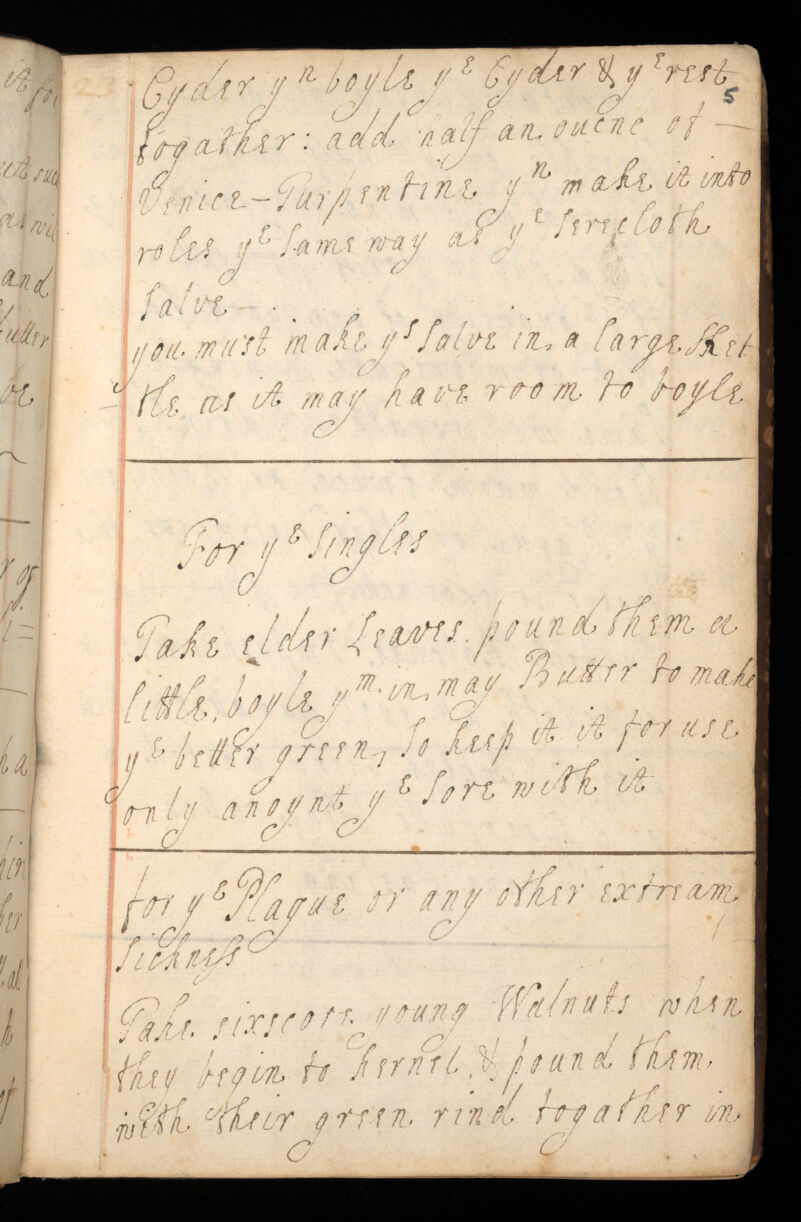 23
5
Cyder yn boyle ye Cyder & ye rest
togather: add half an ounc of —
Venice-Turpentine yn make it into
roles ye same way as ye serecloth
salve —
you must make ys salve in a large sket
tle as it may have room to boyle
For ye Singles
Take elder Leaves. pound them a
little, boyle ym in may Butter to make
ye better green, so keep it it for use
only anoynt ye sore with it
for ye Plague or any other extream
sickness
Take sixscore young Walnuts when
they begin to kernel, & pound them
with their green rind togather in